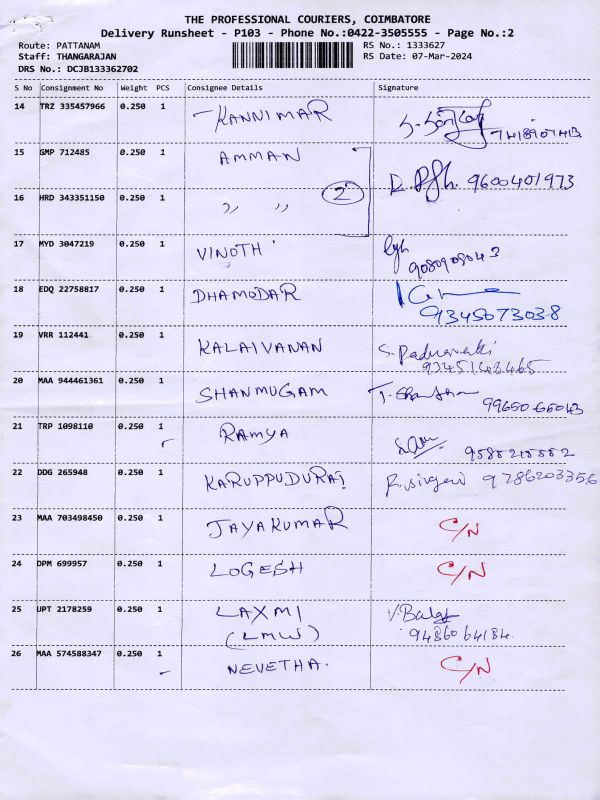 THE PROFESSIONAL COURIERS, COIMBATORE
Delivery Runsheet - P103 - Phone No.:0422-3505555 - Page No.:2
Route: PATTANAM RS No.: 1333627
Staff: THANGARAJAN RS Date: 07-Mar-2024
DRS No.: DCJB133362702
S No Consignment No Weight PCS Consignee Details Signature
14 TRZ 335457966 0.250 1 KANNIMAR
15 GMP 712485 0.250 1 AMMAN
2 9600401973
16 HRD 343351150 0.250 1 ,, ,,
17 MYD 3047219 0.250 1 VINOTH
18 EDQ 22758817 0.250 1 DHAMODAR
9345673038
19 VRR 112441 0.250 1 KALAIVANAN
20 MAA 944461361 0.250 1 SHANMUGAM
21 TRP 1098110 0.250 1 RAMYA
22 DDG 265948 0.250 1 KARUPPUDURAI 9786203356
23 MAA 703498450 0.250 1 JAYAKUMAR C/N
24 DPM 699957 0.250 1 LOGESH C/N
25 UPT 2178259 0.250 1 LAXMI V.Balaji
(LMW) 9486064184
26 MAA 574588347 0.250 1 NEVETHA. C/N